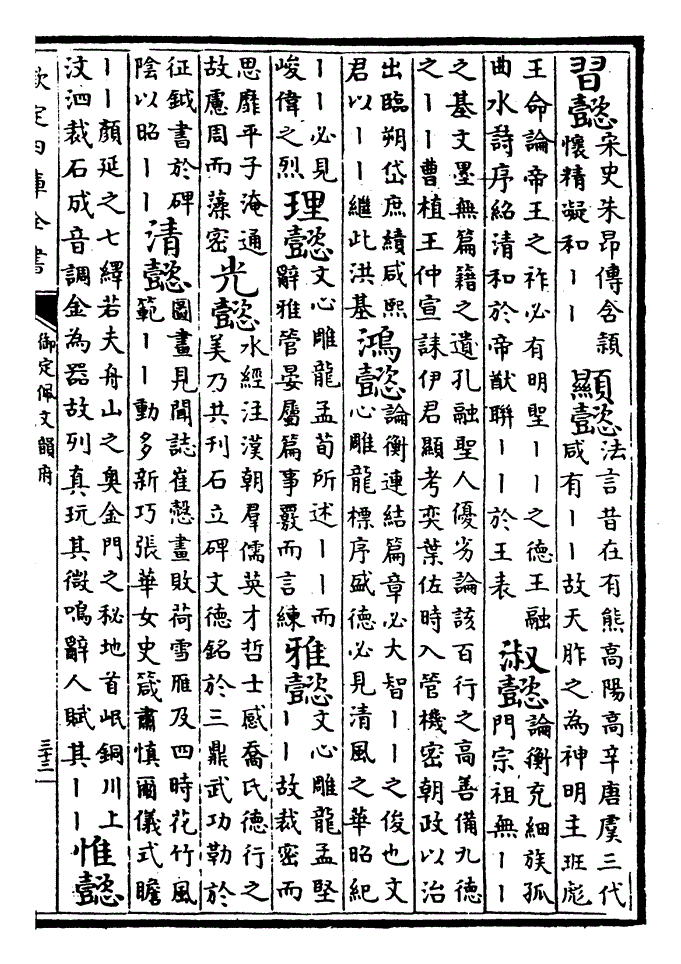 習懿
宋史朱昂傳含頴
懷精凝和丨丨
顯懿
法言昔在有熊高陽高辛唐虞三代
咸有丨丨故天胙之為神明主班彪
王命論帝王之祚必有明聖丨丨之德王融
曲水詩序紹清和於帝猷聯丨丨於王表
淑懿
論衡充細族孤
門宗祖無丨丨
之基文墨無篇籍之遺孔融聖人優劣論該百行之高善備九德
之丨丨曹植王仲宣誄伊君顯考奕葉佐時入管機密朝政以治
出臨朔岱庶績咸熙
君以丨丨繼此洪基
鴻懿
論衡連結篇章必大智丨丨之俊也文
心雕龍標序盛德必見清風之華昭紀
丨丨必見
峻偉之烈
理懿
文心雕龍孟荀所述丨丨而
辭雅管晏屬篇事覈而言練
雅懿
文心雕龍孟堅
丨丨故裁密而
思靡平子淹通
故慮周而藻密
光懿
水經注漢朝羣儒英才哲士感喬氏德行之
美乃共刊石立碑文德銘於三鼎武功勒於
征鉞書於碑
陰以昭丨丨
清懿
圖畫見聞誌崔慤畫敗荷雪雁及四時花竹風
範丨丨動多新巧張華女史箴肅慎爾儀式瞻
丨丨顏延之七繹若夫舟山之奧金門之秘地首岷銅川上
汶泗裁石成音調金為器故列真玩其微鳴辭人賦其丨丨
惟懿
欽定四庫全書
御定佩文韻府
三十三